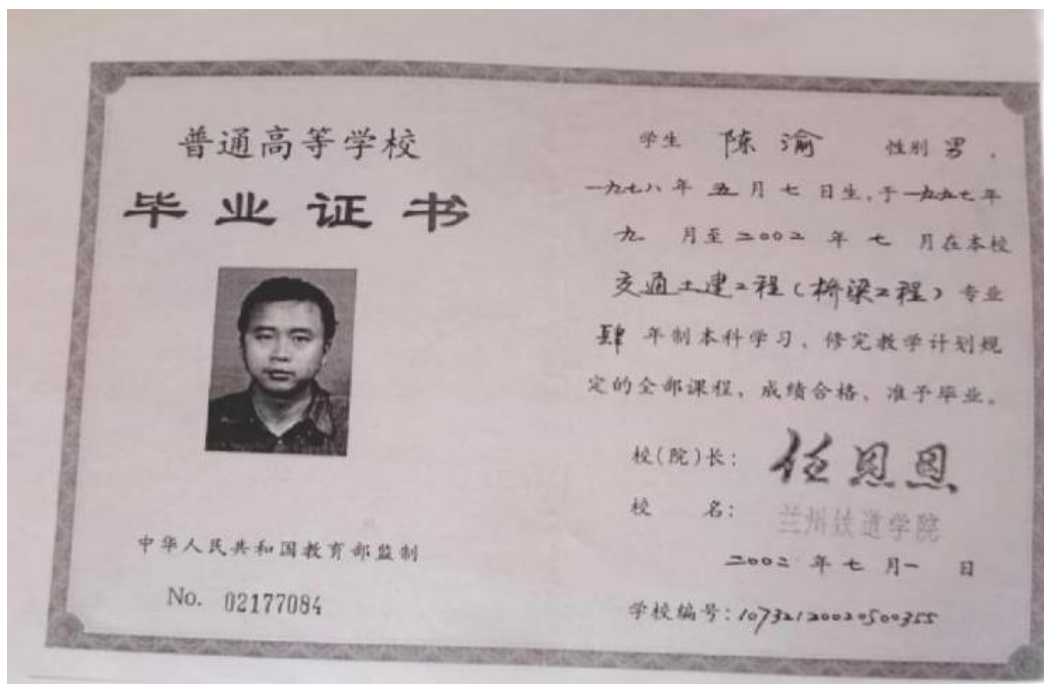 普通高等学校
毕业证书
中华人民共和国教育部监制
No. 02177084
学生 陈渝 性别 男，
一九七八年 五 月 七 日生，于一九九七年
九 月至二〇〇二 年 七 月在本校
交通土建工程（桥梁工程）专业
肆 年制本科学习，修完教学计划规
定的全部课程，成绩合格，准予毕业。
校(院)长： 任恩恩
校 名： 兰州铁道学院
二〇〇二 年 七 月一 日
学校编号：10732120020500355